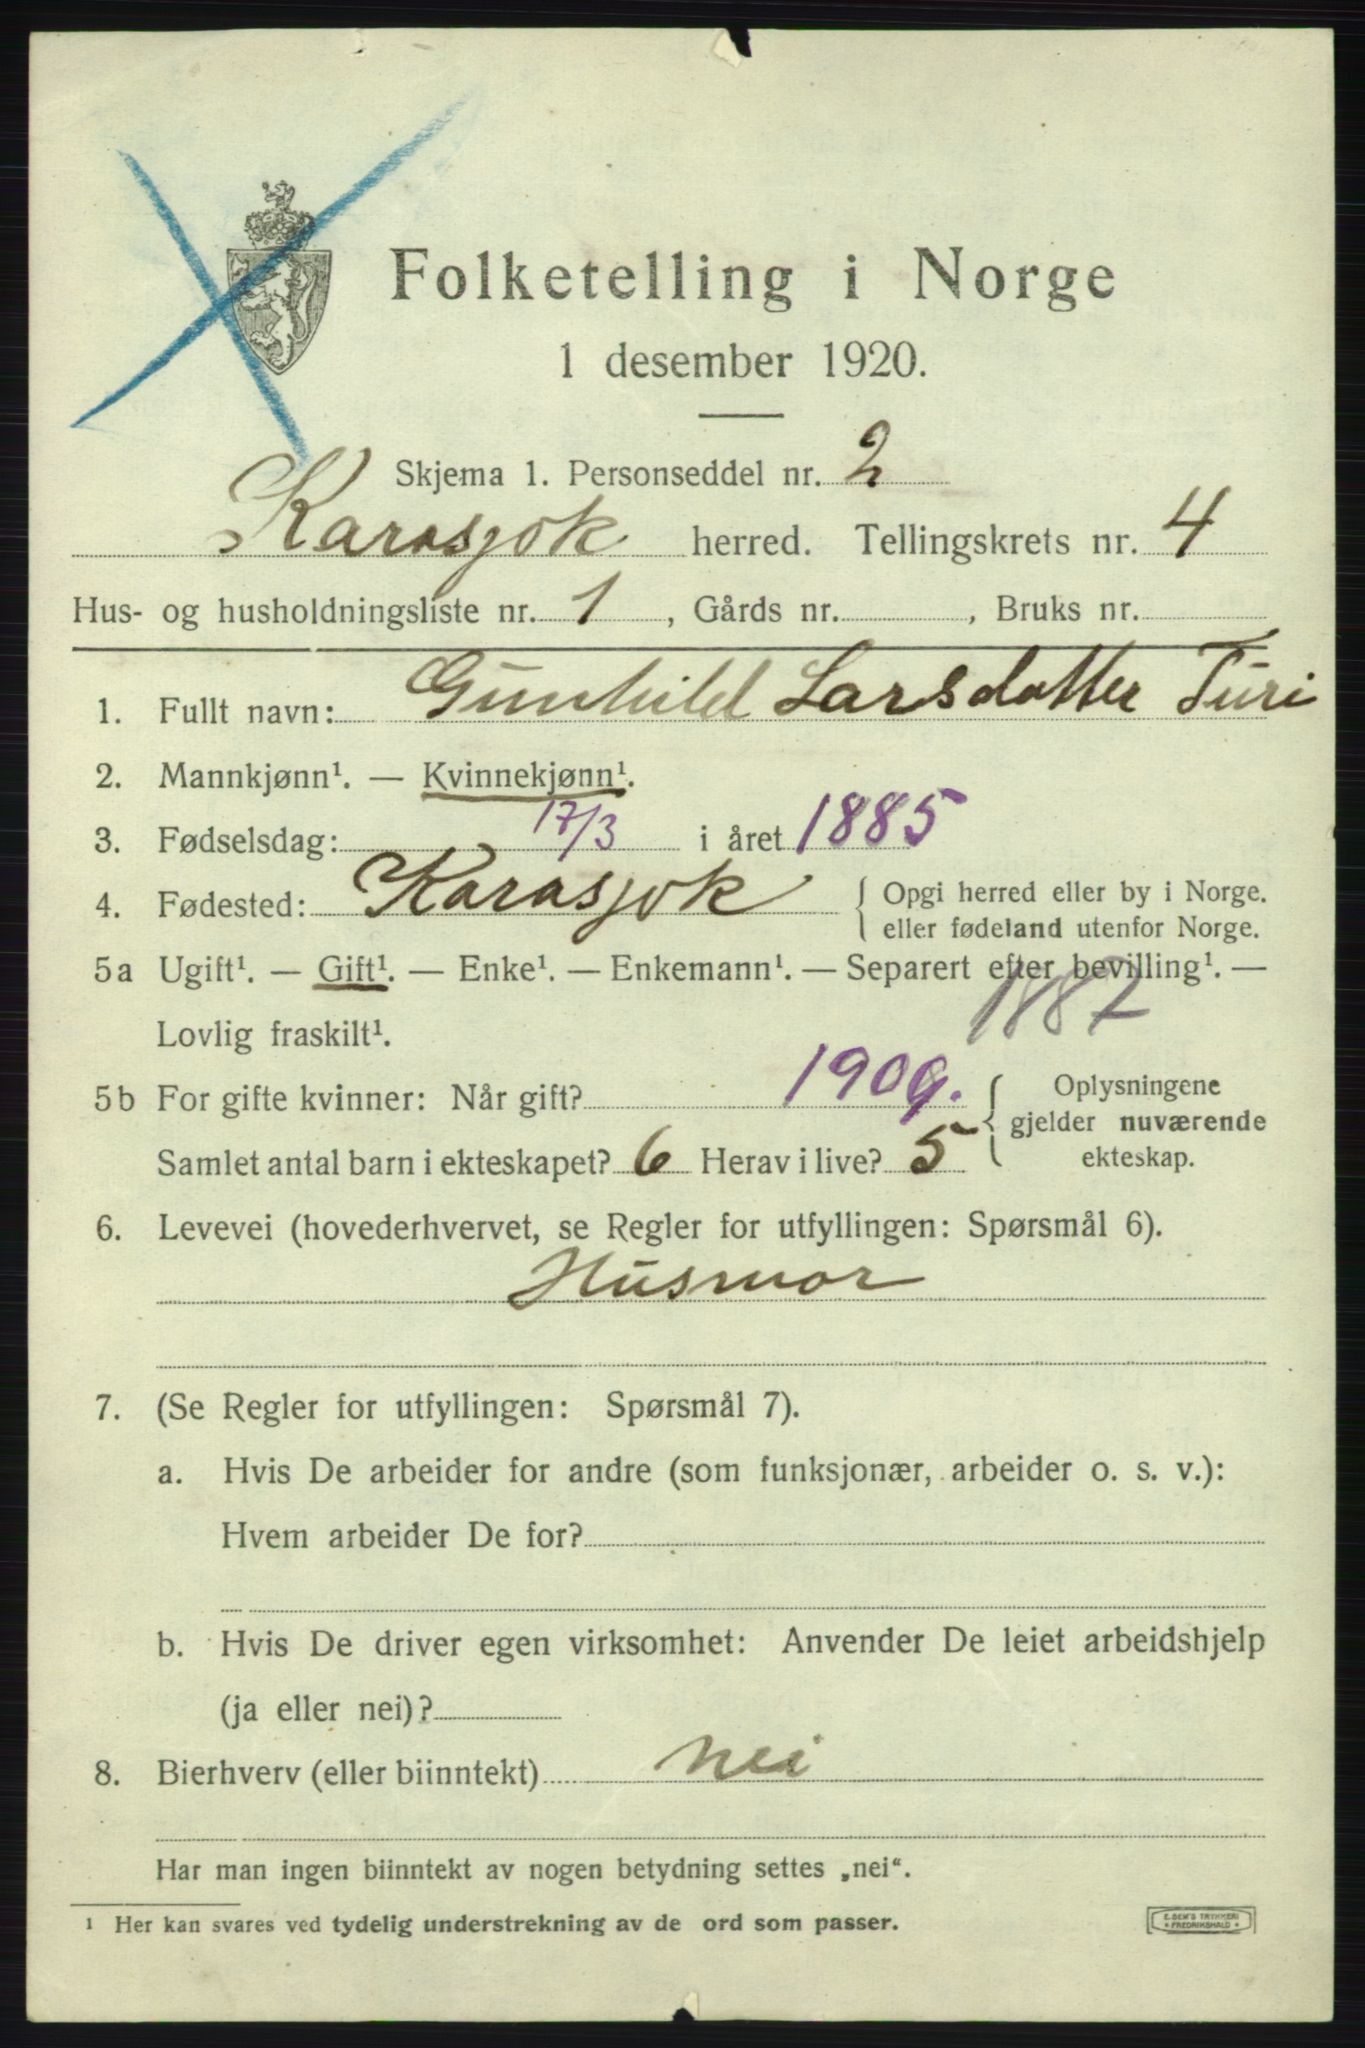 Folketelling i Norge
1 desember 1920.
Skjema 1. Personseddel nr. 2
Karasjok herred. Tellingskrets nr. 4
Hus- og husholdningsliste nr. 1, Gårds nr. , Bruks nr.
1. Fullt navn: Gunhild Larsdatter Turi
2. Mannkjønn¹. — Kvinnekjønn¹.
3. Fødselsdag: 17/3 i året 1885
4. Fødested: Karasjok { Opgi herred eller by i Norge.
eller fødeland utenfor Norge.
5a Ugift¹. — Gift¹. — Enke¹. — Enkemann¹. — Separert efter bevilling¹. —
Lovlig fraskilt¹. 1887
5b For gifte kvinner: Når gift? 1909. { Oplysningene
gjelder nuværende
Samlet antal barn i ekteskapet? 6 Herav i live? 5 ekteskap.
6. Levevei (hovederhvervet, se Regler for utfyllingen: Spørsmål 6).
Husmor
7. (Se Regler for utfyllingen: Spørsmål 7).
a. Hvis De arbeider for andre (som funksjonær, arbeider o. s. v.):
Hvem arbeider De for?
b. Hvis De driver egen virksomhet: Anvender De leiet arbeidshjelp
(ja eller nei)?
8. Bierhverv (eller biinntekt) nei
Har man ingen biinntekt av nogen betydning settes „nei“.
¹ Her kan svares ved tydelig understrekning av de ord som passer.
E. SEM'S TRYKKERI
FREDRIKSHALD